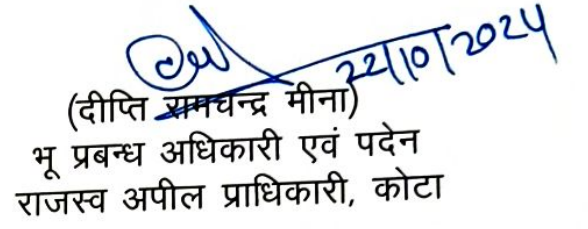 22/10/2024
(दीप्ति रामचन्द्र मीना)
भू प्रबन्ध अधिकारी एवं पदेन
राजस्व अपील प्राधिकारी, कोटा